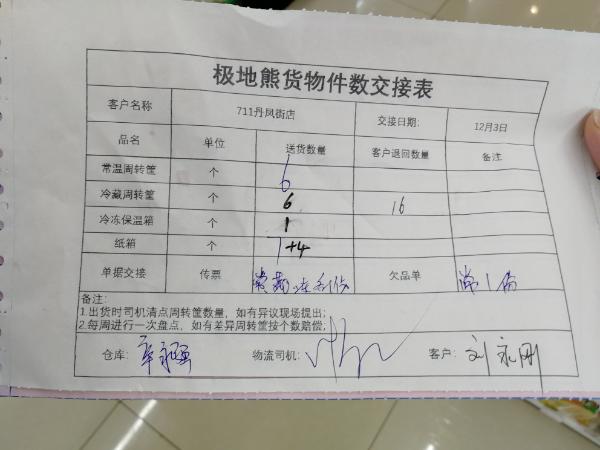 极地熊货物件数交接表
客户名称 711丹凤街店 交接日期: 12月3日
品名 单位 送货数量 客户退回数量 备注
常温周转筐 个 6
冷藏周转筐 个 6 16
冷冻保温箱 个 1
纸箱 个 1+4
单据交接 传票 欠品单
备注:
1.出货时司机清点周转筐数量，如有异议现场提出;
2.每周进行一次盘点，如有差异周转筐按个数赔偿;
仓库: 物流司机: 客户: 刘永刚